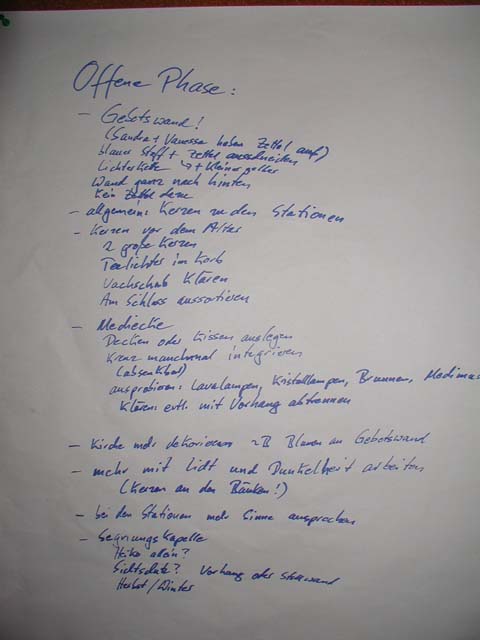 Offene Phase:
- Gebetswand!
(Sandra + Vanessa haben Zettel auf)
blauer Stoff + Zettel ausschneiden
Lichterkette ↳ + kleiner
Wand ganz nach hinten
Kein Zettel dazu
- allgemein: Kerzen zu den Stationen
- Kerzen vor dem Altar
2 große Kerzen
Teelichter im Korb
Nachschub klären
Am Schluss aussortieren
- Mediecke
Decken oder Kissen auslegen
Kreuz manchmal integrieren
(absenkbar)
ausprobieren: Lavalampen, Kristalllampen, Brunnen, Medimus
Klären: evtl. mit Vorhang abtrennen
- Kirche mehr dekorieren zB Blumen an Gebetswand
- mehr mit Licht und Dunkelheit arbeiten
(Kerzen an den Bänken!)
- bei den Stationen mehr Sinne ansprechen
- Segnungskapelle
Heiko allein?
Sichtschutz? Vorhang oder Stellwand
Herbst/Winter